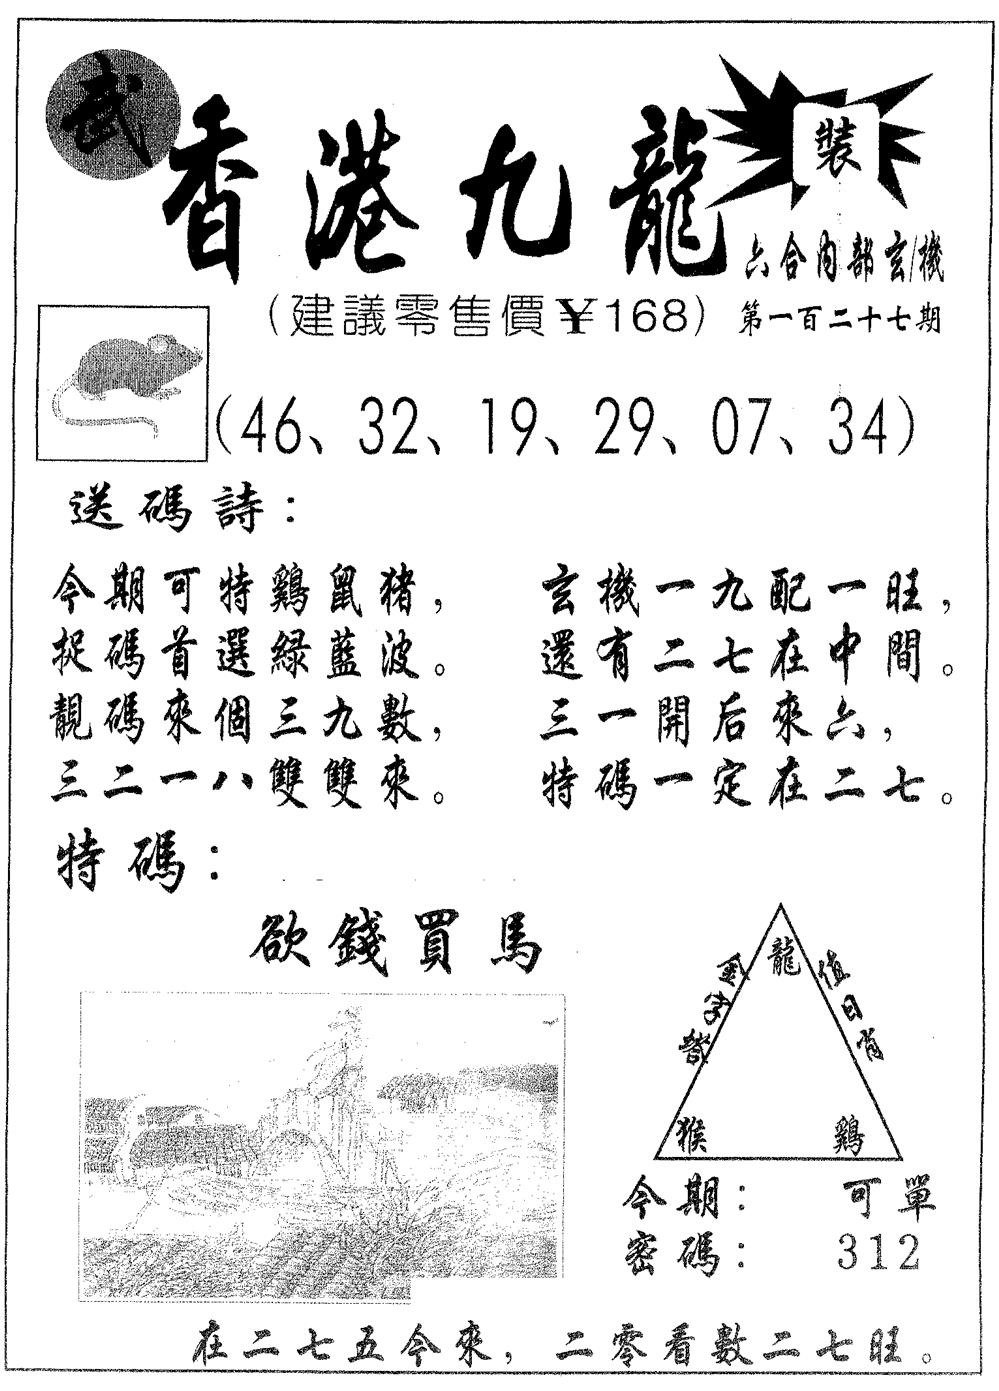 武
香港九龍
裝
六合內部玄機
(建議零售價¥168)
第一百二十七期
(46、32、19、29、07、34)
送碼詩:
今期可特鷄鼠猪,
捉碼首選綠藍波。
靚碼來個三九數,
三二一八雙雙來。
玄機一九配一旺,
還有二七在中間。
三一開后來六,
特碼一定在二七。
特碼:
欲錢買馬
金字塔
龍
值日肖
猴
鷄
今期: 可單
密碼: 312
在二七五今來, 二零看數二七旺。